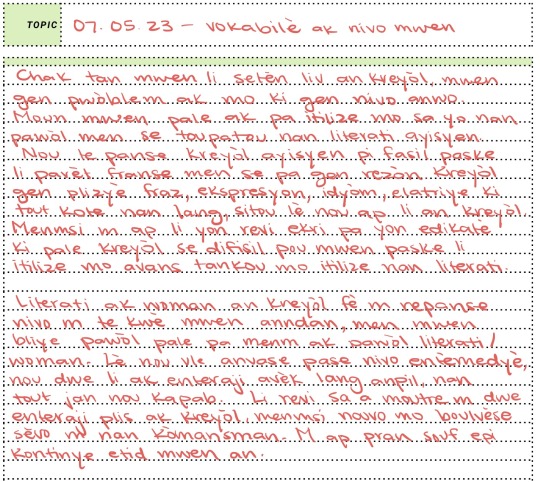 TOPIC 07.05.23 - vokabilè ak nivo mwen
Chak tan mwen li setèn liv an kreyòl, mwen
gen pwòblem ak mo ki gen nivo anwo.
Moun mwen pale ak pa itilize mo sa yo nan
pawòl men se toupatou nan literati ayisyen.
Nou le panse kreyòl ayisyen pi fasil paske
li parèt franse men se pa gen rezon kreyòl
gen plizyè fraz, ekspresyon, idyòm, elatriye ki
tout kote nan lang, sitou lè nou ap li an kreyòl.
Menmsi m ap li yon revi ekri pa yon edikate
ki pale kreyòl se difisil pou mwen paske li
itilize mo avans tankou mo itilize nan literati.
Literati ak woman an kreyòl fè m repanse
nivo m te kwè mwen anndan, men mwen
bliye pawòl pale pa menm ak pawòl literati/
woman. Lè nou vle anvase pase nivo entèmedyè,
nou dwe li ak enteraji avèk lang anpil, nan
tout jan nou kapab. Li revi sa a montre m dwe
enteraji plis ak kreyòl, menmsi nouvo mo boulvèse
sèvo m nan kòmansman. M ap pran souf epi
kontinye etid mwen an.